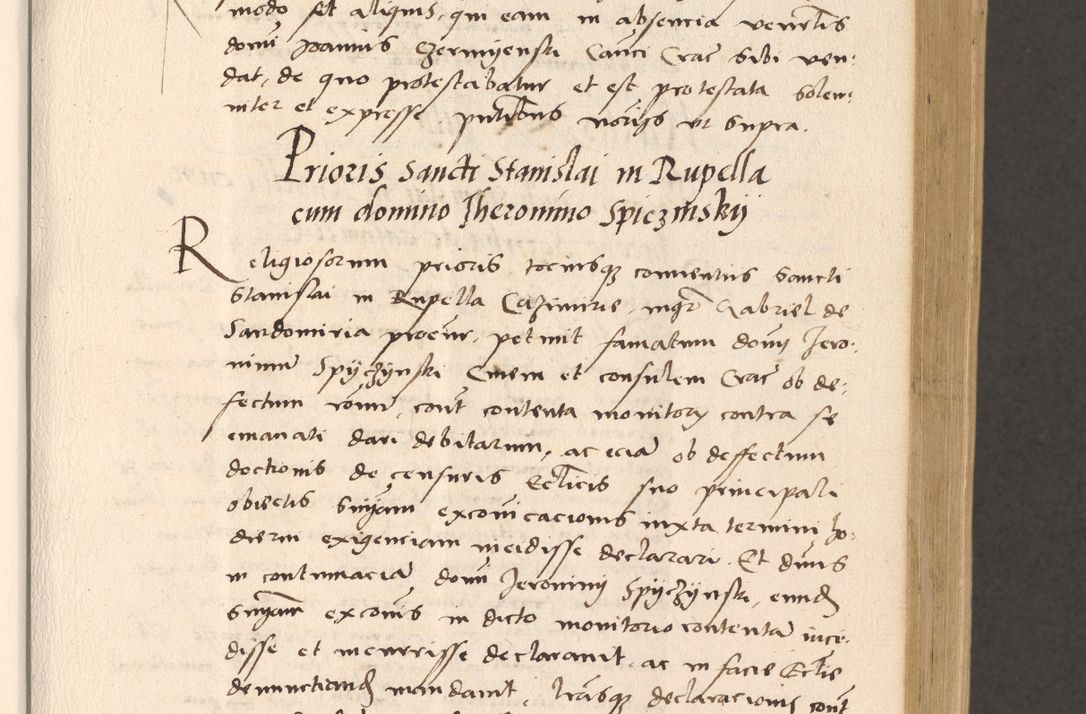 modo sit aliquis, qui eam in absencia venerlis
domi Joannis Czermyenski Canci Crac sibi ven:
dat, de quo protestabatur et est protestata solen:
niter et expresse pntibus norijs ut supra.
Prioris Sancti Stanislai in Rupella
cum domino Jheronimo Spiczinskij
Religiosorum prioris tociusque conventus Sancti
Stanislai in Rupella Cazimirie, mgr Gabriel de
Sandomiria procur, petiuit famatum domi Jero:
nimum Spyczynski Ciuem et consulem Crac ob de:
fectum rōnum, cont contenta monitorij contra se
emanati dari debitarum, ac eciā ob deffectum
doctionis de censuris Ecclicis suo principali
obiectis snyam excoicacionis iuxta termini ho:
dierni exigenciam incidisse declarari. Et dnus
in contumaciā domi Jeronimi Spyczynski, eundē
snyam excois in dicto monitorio contentā inci:
disse et incurrisse declarauit, ac in facie Ecclie
denunctiandū mandauit, lrasque declaracionis cont